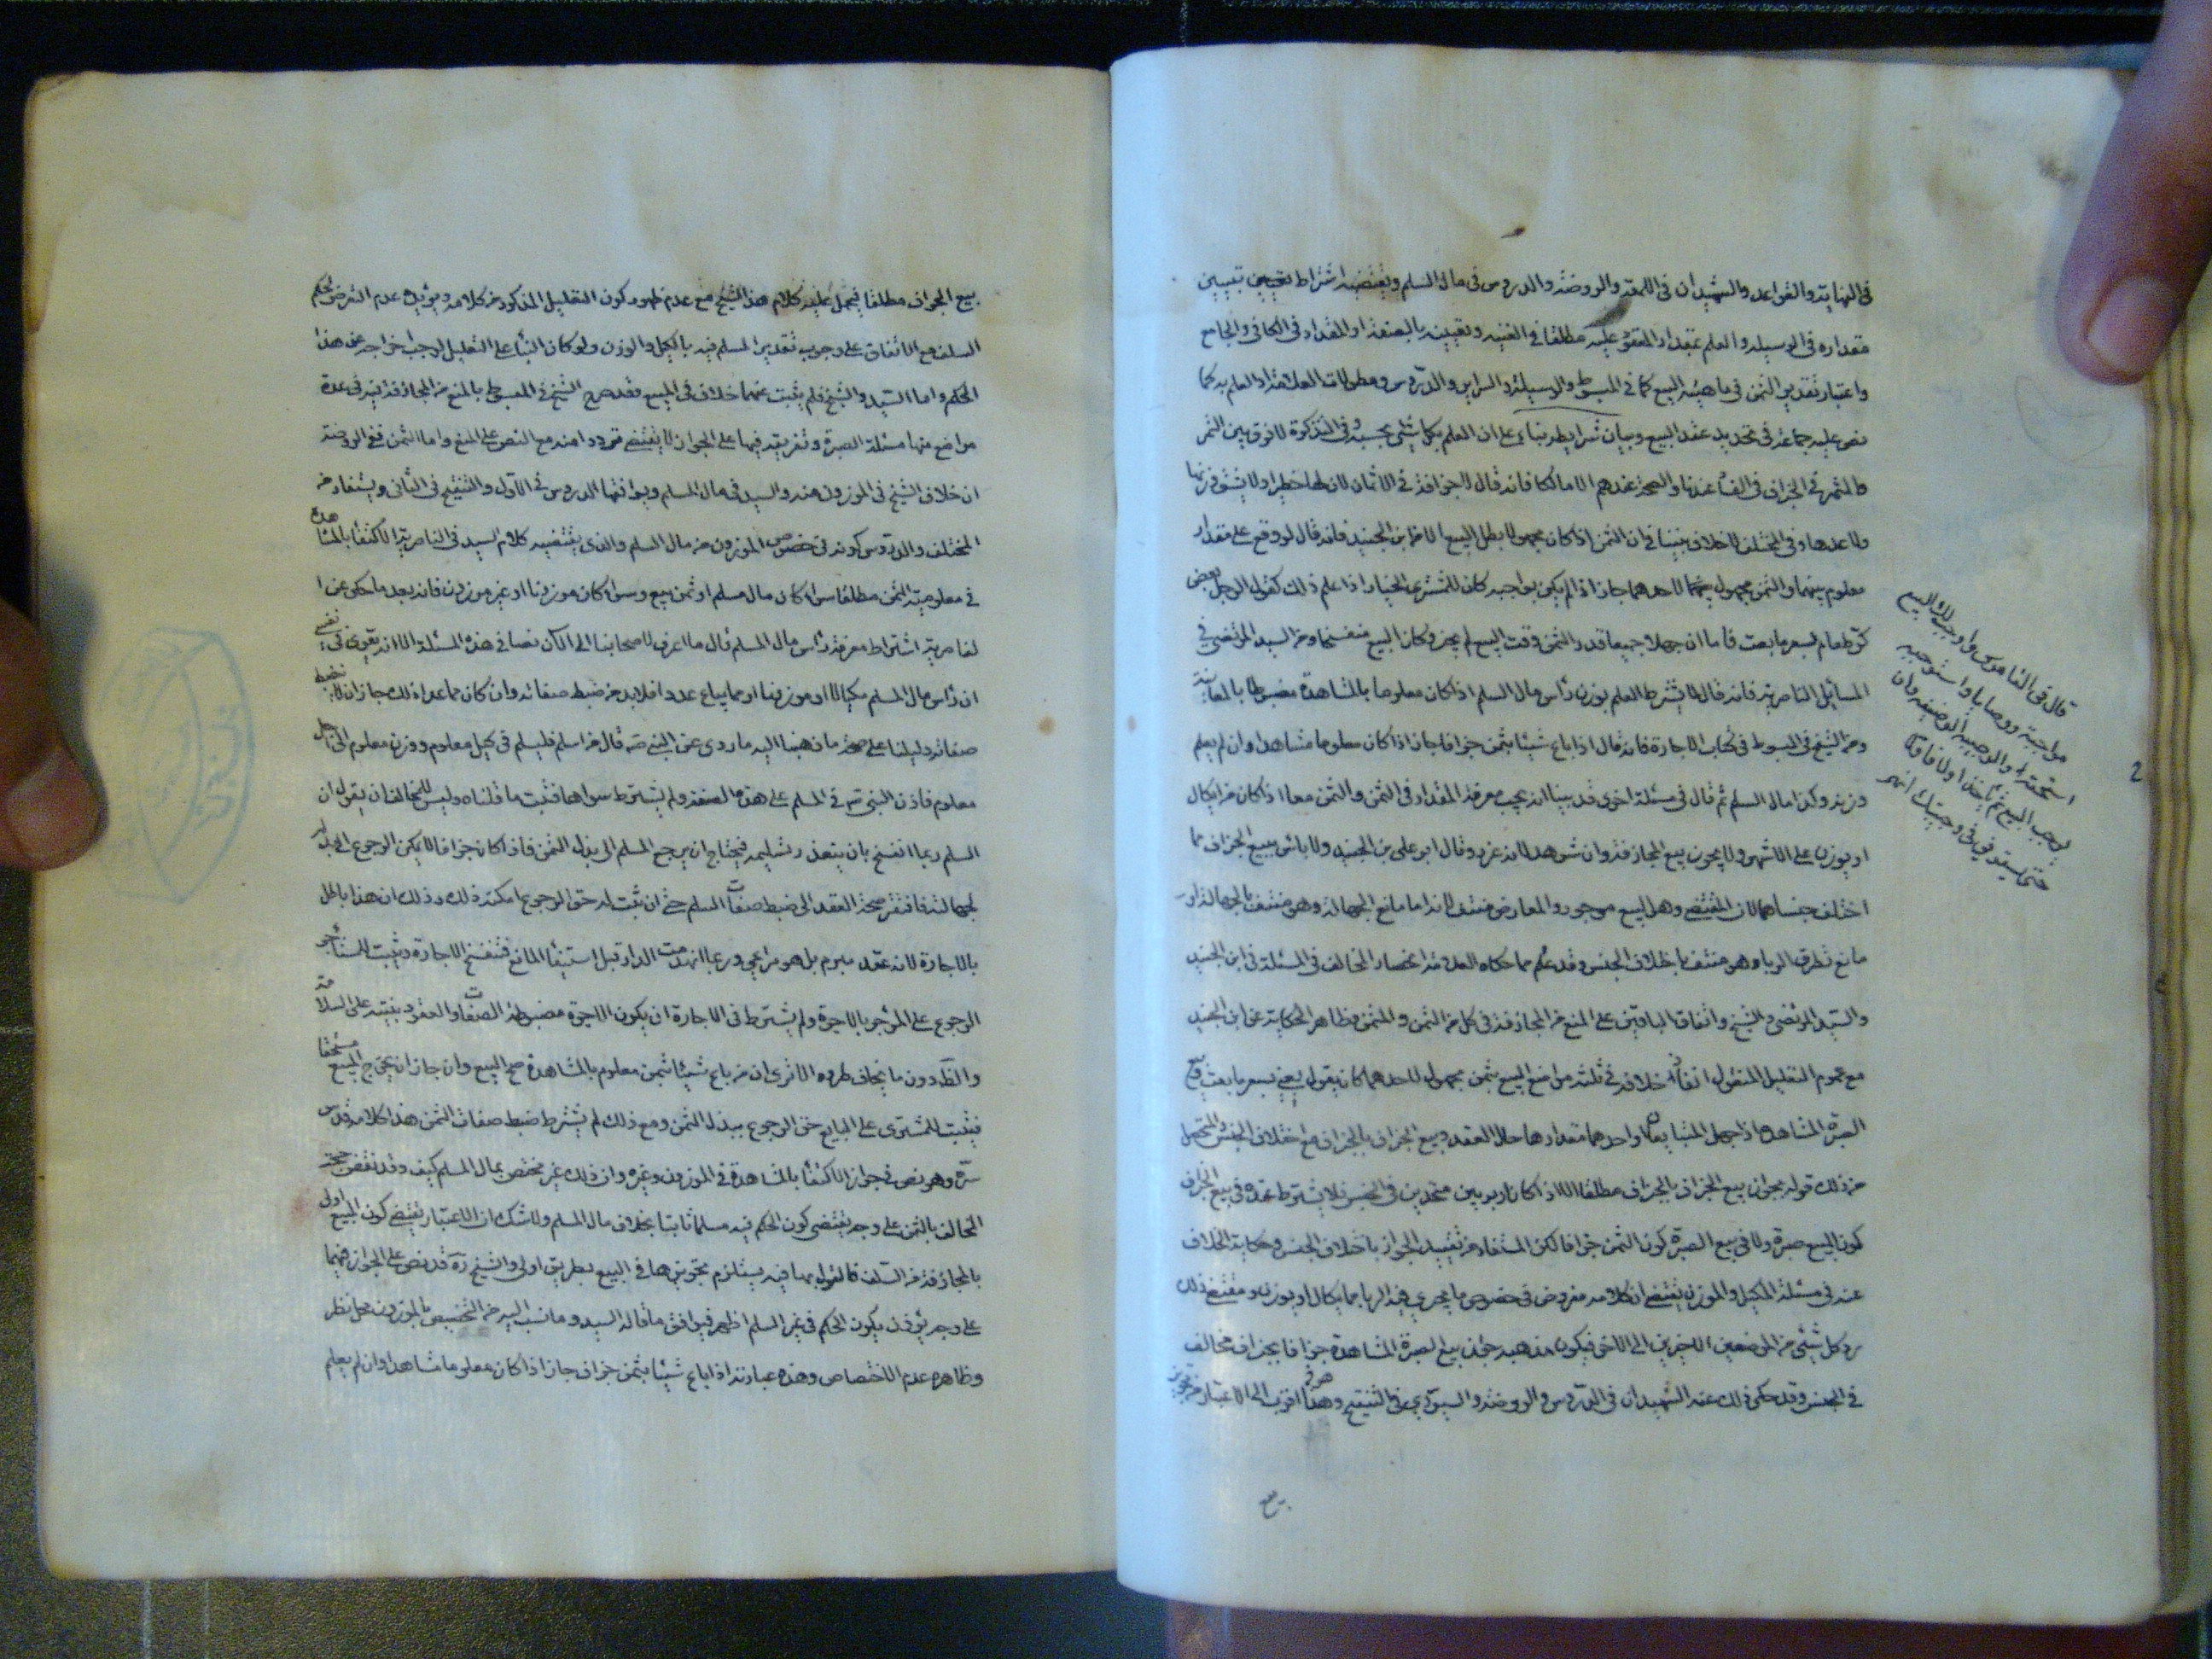 في النهاية والقواعد والشهيدان في اللمعة والروضة والدروس في مال السلم ويقتضيه اشتراط تعيين
مقداره في الوسيلة والعلم بمقدار المعقود عليه مطلقا في الغنية وتعيينه بالصفة او المقدار في الكافي والجامع
واعتبار تقدير الثمن في ماهية البيع كما في المبسوط والوسيلة والسراير والدروس و العلم به كما
نص عليه جماعة في تحديد عقد البيع وبيان شرايطه بناء على ان العلم بكل شئ بحسبه وفي التذكرة لا فرق بين الثمن
والمثمن في الجزاف في الفساد عندنا و عندهم الا مالكا فانه قال لا يجوز في الاثمان لان لها خطرا ولا يشق وزنها
ولا عدها وفي المختلف لا خلاف بيننا في ان الثمن اذا كان مجهولا بطل البيع الا من ابن الجنيد فانه قال لو وقع على مقدار
معلوم بينهما والثمن مجهول لاحدهما جاز اذا لم يكن بواجبه كان للمشتري الخيار اذا علم ذلك كقول الرجل بعني
كر طعام بسعر ما بعت فاما ان جهلا جميعا قدر الثمن وقت البيع لم يجز وكان البيع منفسخا ومن السيد المرتضى في
المسائل الناصرية فانه قال لا يشترط العلم بوزن رأس مال السلم اذا كان معلوما بالمشاهدة مضبوطا بالمعاينة
ومن الشيخ في المبسوط في كتاب الاجارة فانه قال اذا باع شيئا بثمن جزافا جاز اذا كان معلوما مشاهدا وان لم يعلم
وزنه وكذا مال السلم ثم قال في مسئلة اخرى قد بينا انه يجب معرفة المقدار في الثمن والمثمن معا اذا كان مما يكال
او يوزن على الاشهر ولا يجوز بيع المجازفة وان شوهد لانه غرر وقال ابو علي بن الجنيد ولا بأس ببيع الجزاف مما
اختلف جنساهما لان المقتضي وهو البيع موجود والمعارض منتف لانه اما مانع الجهالة وهو منتف بالجهالة او
مانع تطرق الربا وهو منتف باختلاف الجنس وقد علم مما حكاه العلامة انحصار المخالف في المسئلة في ابن الجنيد
والسيد المرتضى والشيخ واتفاق الباقين على المنع من المجازفة في كل من الثمن والمثمن وظاهر الحكاية عن ابن الجنيد
مع عموم التعليل المنقول انفا خلافه في ثلثة مواضع البيع بثمن مجهول لاحدهما كان يقول بعني بسعر ما بعت وبيع
الصبرة المشاهدة اذا جهل المتبايعان او احدهما مقدارها حال العقد وبيع الجزاف بالجزاف مع اختلاف الجنس والمتحصل
من ذلك قوله بجواز بيع الجزاف بالجزاف مطلقا الا اذا كانا ربويين متحدين في الجنس فلا يشترط عنده في بيع الجزاف
كون المبيع صبرة ولا في بيع الصبرة كون الثمن جزافا لكن المستفاد من تقييد الجواز باختلاف الجنس وحكاية الخلاف
عنه في مسئلة المكيل والموزون يقتضي ان كلامه مفروض في خصوص ما يجري فيه الربا مما يكال او يوزن ومقتضى ذلك
رد كل شئ من الموضعين الاخيرين الى الاخر فيكون مذهبه جواز بيع الصبرة المشاهدة جزافا بجزاف مخالف
في الجنس وقد حكى ذلك عنه الشهيدان في الدروس والروضة والسيوري في التنقيح وهذا هو اقرب الى الاعتبار من تجويز
قال في القاموس واوجب لك البيع
مواجبة ووجابا واستوجبه
استحقه والوجيبة الوظيفة وان
توجب البيع ثم تأخذ اولا فاولا
حتى تستوفي وجيبتك انتهى
بيع
2
بيع الجزاف مطلقا فيحمل عليه كلام هذا الشيخ مع عدم ظهور كون التعليل المذكور من كلامه ويؤيده عدم التعرض لحكم
السلف مع الاتفاق على وجوب تقدير المسلم فيه بالكيل والوزن ولو كان البناء على التعليل لوجب اخراجه عن هذا
الحكم واما السيد والشيخ فلم يثبت عنهما خلاف في المبيع فقد صرح الشيخ في المبسوط بالمنع من المجازفة فيه في عدة
مواضع منها مسئلة الصبرة وتفريقه فيها على الجواز لا يقتضي تردده مع النص على المنع واما الثمن ففي الروضة
ان خلاف الشيخ في الموزون منه والسيد في مال السلم ويوافقها الدروس في الاول والتنقيح في الثاني ويستفاد من
المختلف والدروس كونه في خصوص الموزون من مال السلم والذي يقتضيه كلام السيد في الناصرية الاكتفاء بالمشاهدة
في معلومية الثمن مطلقا سواء كان مال سلم او ثمن مبيع وسواء كان موزونا او غير موزون فانه بعد ما حكى عن
الناصرية اشتراط معرفة رأس مال السلم قال ما اعرف لاصحابنا الى الآن نصا في هذه المسئلة الا انه يقوى في نفسي
ان رأس مال السلم مكيالا او موزونا او مما يباع عددا فلا بد من ضبط صفاته وان كان مما عدا ذلك جاز ان لا يضبط
صفاته دليلنا على صحة ما ذهبنا اليه ما روي عن النبي ص قال من اسلم فليسلم في كيل معلوم ووزن معلوم الى اجل
معلوم فاذن النبي ص في السلم على هذه الصفة ولم يشترط سواها فثبت ما قلناه وليس للمخالف ان يقول ان
السلم ربما انفسخ بان يتعذر تسليمه فيحتاج ان يرجع المسلم الى بذل الثمن فاذا كان جزافا لا يمكن الرجوع الى بدله
لجهالته فافتقر صحة العقد الى ضبط صفات السلم حتى ان ثبت له حق الرجوع امكنه ذلك وذلك ان هذا باطل
بالاجارة لانه عقد مبرم بل هو مراعى وربما انهدمت الدار قبل استيفاء المنافع فتنفسخ الاجارة ويثبت للمستأجر
الرجوع على المؤجر بالاجرة ولم يشترط في الاجارة ان يكون الاجرة مضبوطة الصفات والعقود مبنية على السلامة
والظاهر دون ما يخاف طروه الا ترى ان من باع شيئا بثمن معلوم بالمشاهدة صح البيع وان جاز ان يخرج المبيع مستحقا
فيثبت للمشتري على البايع حق الرجوع ببذل الثمن ومع ذلك لم يشترط ضبط صفات الثمن هذا كلامه قدس
سره وهو نص في جواز الاكتفاء بالمشاهدة في الموزون وغيره وان ذلك غير مختص بمال السلم كيف وقد نقض حجة
المخالف بالثمن على وجه يقتضي كون الحكم فيه مسلما ثابتا بخلاف مال السلم ولا شك ان الاعتبار يقتضي كون المبيع اولى
بالمجازفة من السلف فالقول بها فيه يستلزم تجويزها في البيع بطريق اولى والشيخ ره قد نص على الجواز فيهما
على وجه يؤذن بكون الحكم في غير السلم اظهر فيوافق ما قاله السيد وما نسب اليه من التخصيص بالموزون محل نظر
وظاهره عدم الاختصاص وهذه عبارته اذا باع شيئا بثمن جزاف جاز اذا كان معلوما مشاهدا وان لم يعلم